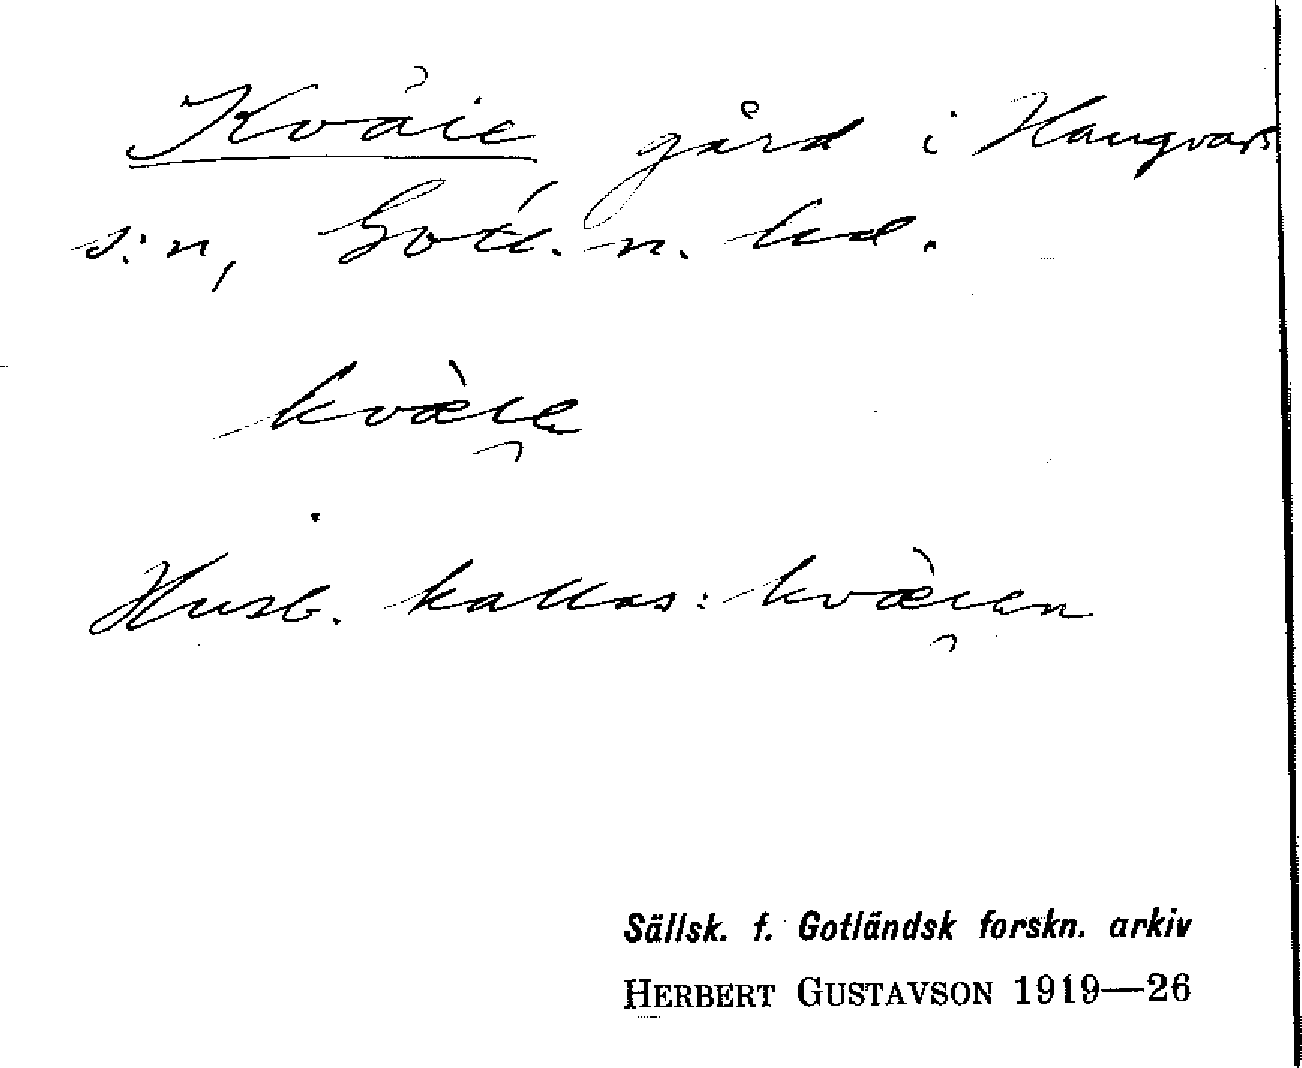 Kväie gård i Hangvars
s:n, Gotl. n. hd.
kvæ̀ıe
Husb. kallas: kvæ̀ıen
Sällsk. f. Gotländsk forskn. arkiv
HERBERT GUSTAVSON 1919—26